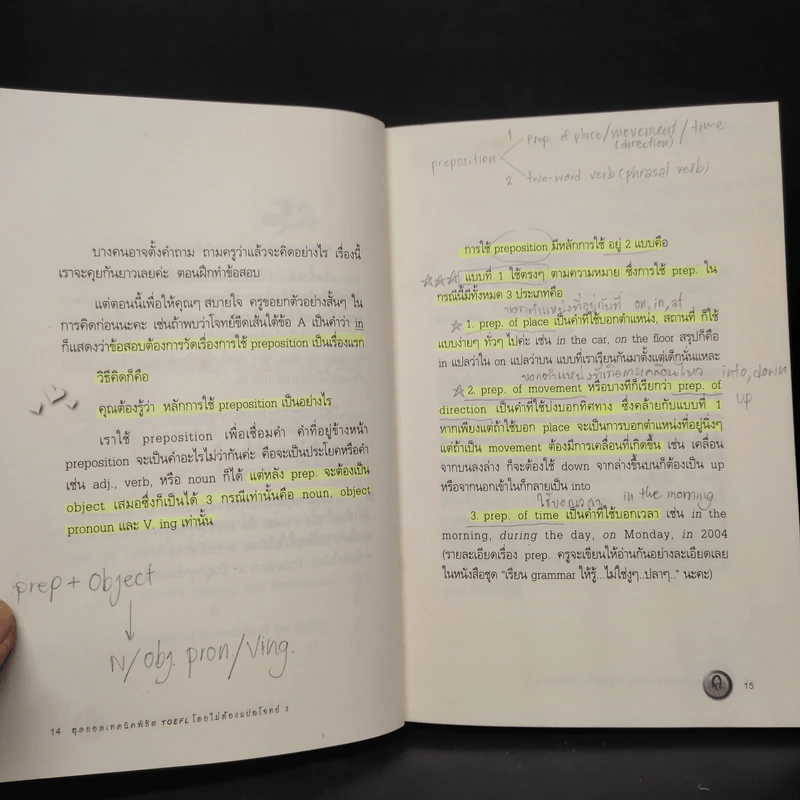 บางคนอาจตั้งคำถาม ถามครูว่าแล้วจะคิดอย่างไร เรื่องนี้
เราจะคุยกันยาวเลยค่ะ ตอนฝึกทำข้อสอบ
แต่ตอนนี้เพื่อให้คุณๆ สบายใจ ครูขอยกตัวอย่างสั้นๆ ใน
การคิดก่อนนะคะ เช่นถ้าพบว่าโจทย์ขีดเส้นใต้ข้อ A เป็นคำว่า in
ก็แสดงว่าข้อสอบต้องการวัดเรื่องการใช้ preposition เป็นเรื่องแรก
วิธีคิดก็คือ
คุณต้องรู้ว่า หลักการใช้ preposition เป็นอย่างไร
เราใช้ preposition เพื่อเชื่อมคำ คำที่อยู่ข้างหน้า
preposition จะเป็นคำอะไรไม่ว่ากันค่ะ คือจะเป็นประโยคหรือคำ
เช่น adj., verb, หรือ noun ก็ได้ แต่หลัง prep. จะต้องเป็น
object เสมอซึ่งก็เป็นได้ 3 กรณีเท่านั้นคือ noun, object
pronoun และ V. ing เท่านั้น
prep + Object
N/obj. pron/Ving.
14 สุดยอดเทคนิคพิชิต TOEFL โดยไม่ต้องแปลโจทย์ 3
1 prep. of place/movement/time
(direction)
preposition
2 two-word verb (phrasal verb)
การใช้ preposition มีหลักการใช้ อยู่ 2 แบบคือ
แบบที่ 1 ใช้ตรงๆ ตามความหมาย ซึ่งการใช้ prep. ใน
กรณีนี้มีทั้งหมด 3 ประเภทคือ
บอกตำแหน่งที่อยู่กับที่ on, in, at
1. prep. of place เป็นคำที่ใช้บอกตำแหน่ง, สถานที่ ก็ใช้
แบบง่ายๆ ทั่วๆ ไปค่ะ เช่น in the car, on the floor สรุปก็คือ
in แปลว่าใน on แปลว่าบน แบบที่เราเรียนกันมาตั้งแต่เด็กนั่นแหละ
บอกตำแหน่งที่มีการเคลื่อนไหว into, down
up
2. prep. of movement หรือบางทีก็เรียกว่า prep. of
direction เป็นคำที่ใช้บ่งบอกทิศทาง ซึ่งคล้ายกับแบบที่ 1
หากเพียงแต่ถ้าใช้บอก place จะเป็นการบอกตำแหน่งที่อยู่นิ่งๆ
แต่ถ้าเป็น movement ต้องมีการเคลื่อนที่เกิดขึ้น เช่น เคลื่อน
จากบนลงล่าง ก็จะต้องใช้ down จากล่างขึ้นบนก็ต้องเป็น up
หรือจากนอกเข้าในก็กลายเป็น into
ใช้บอกเวลา in the morning
3. prep. of time เป็นคำที่ใช้บอกเวลา เช่น in the
morning, during the day, on Monday, in 2004
(รายละเอียดเรื่อง prep. ครูจะเขียนให้อ่านกันอย่างละเอียดเลย
ในหนังสือชุด "เรียน grammar ให้รู้...ไม่ใช่งูๆ..ปลาๆ.." นะคะ)
15